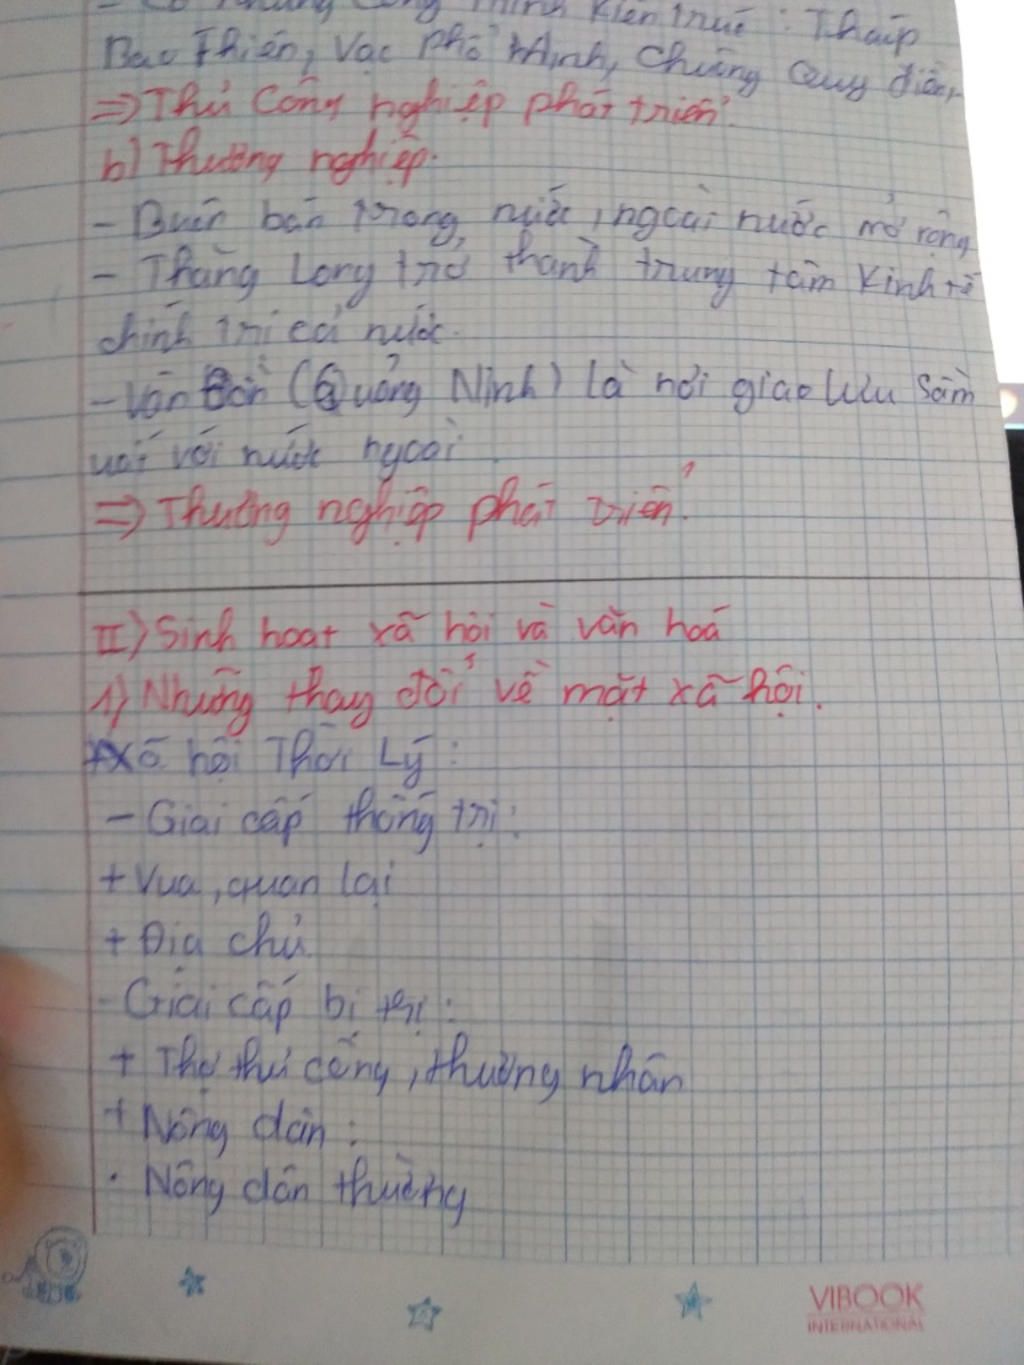 - Có những công trình kiến trúc : Tháp
Báo Thiên, Vạc Phổ Minh, Chuông Quy điền,
=> Thủ Công nghiệp phát triển.
b) Thương nghiệp.
- Buôn bán trong nước, ngoài nước mở rộng
- Thăng Long trở thành trung tâm kinh tế
chính trị cả nước.
- Vân Đồn (Quảng Ninh) là nơi giao lưu sầm
uất với nước ngoài.
=> Thương nghiệp phát triển.
II) Sinh hoạt xã hội và văn hoá
1) Những thay đổi về mặt xã hội.
*Xã hội Thời Lý :
- Giai cấp thống trị :
+ Vua, quan lại
+ Địa chủ
- Giai cấp bị trị :
+ Thợ thủ công, thường nhân
+ Nông dân :
. Nông dân thường
VIBOOK
INTERNATIONAL